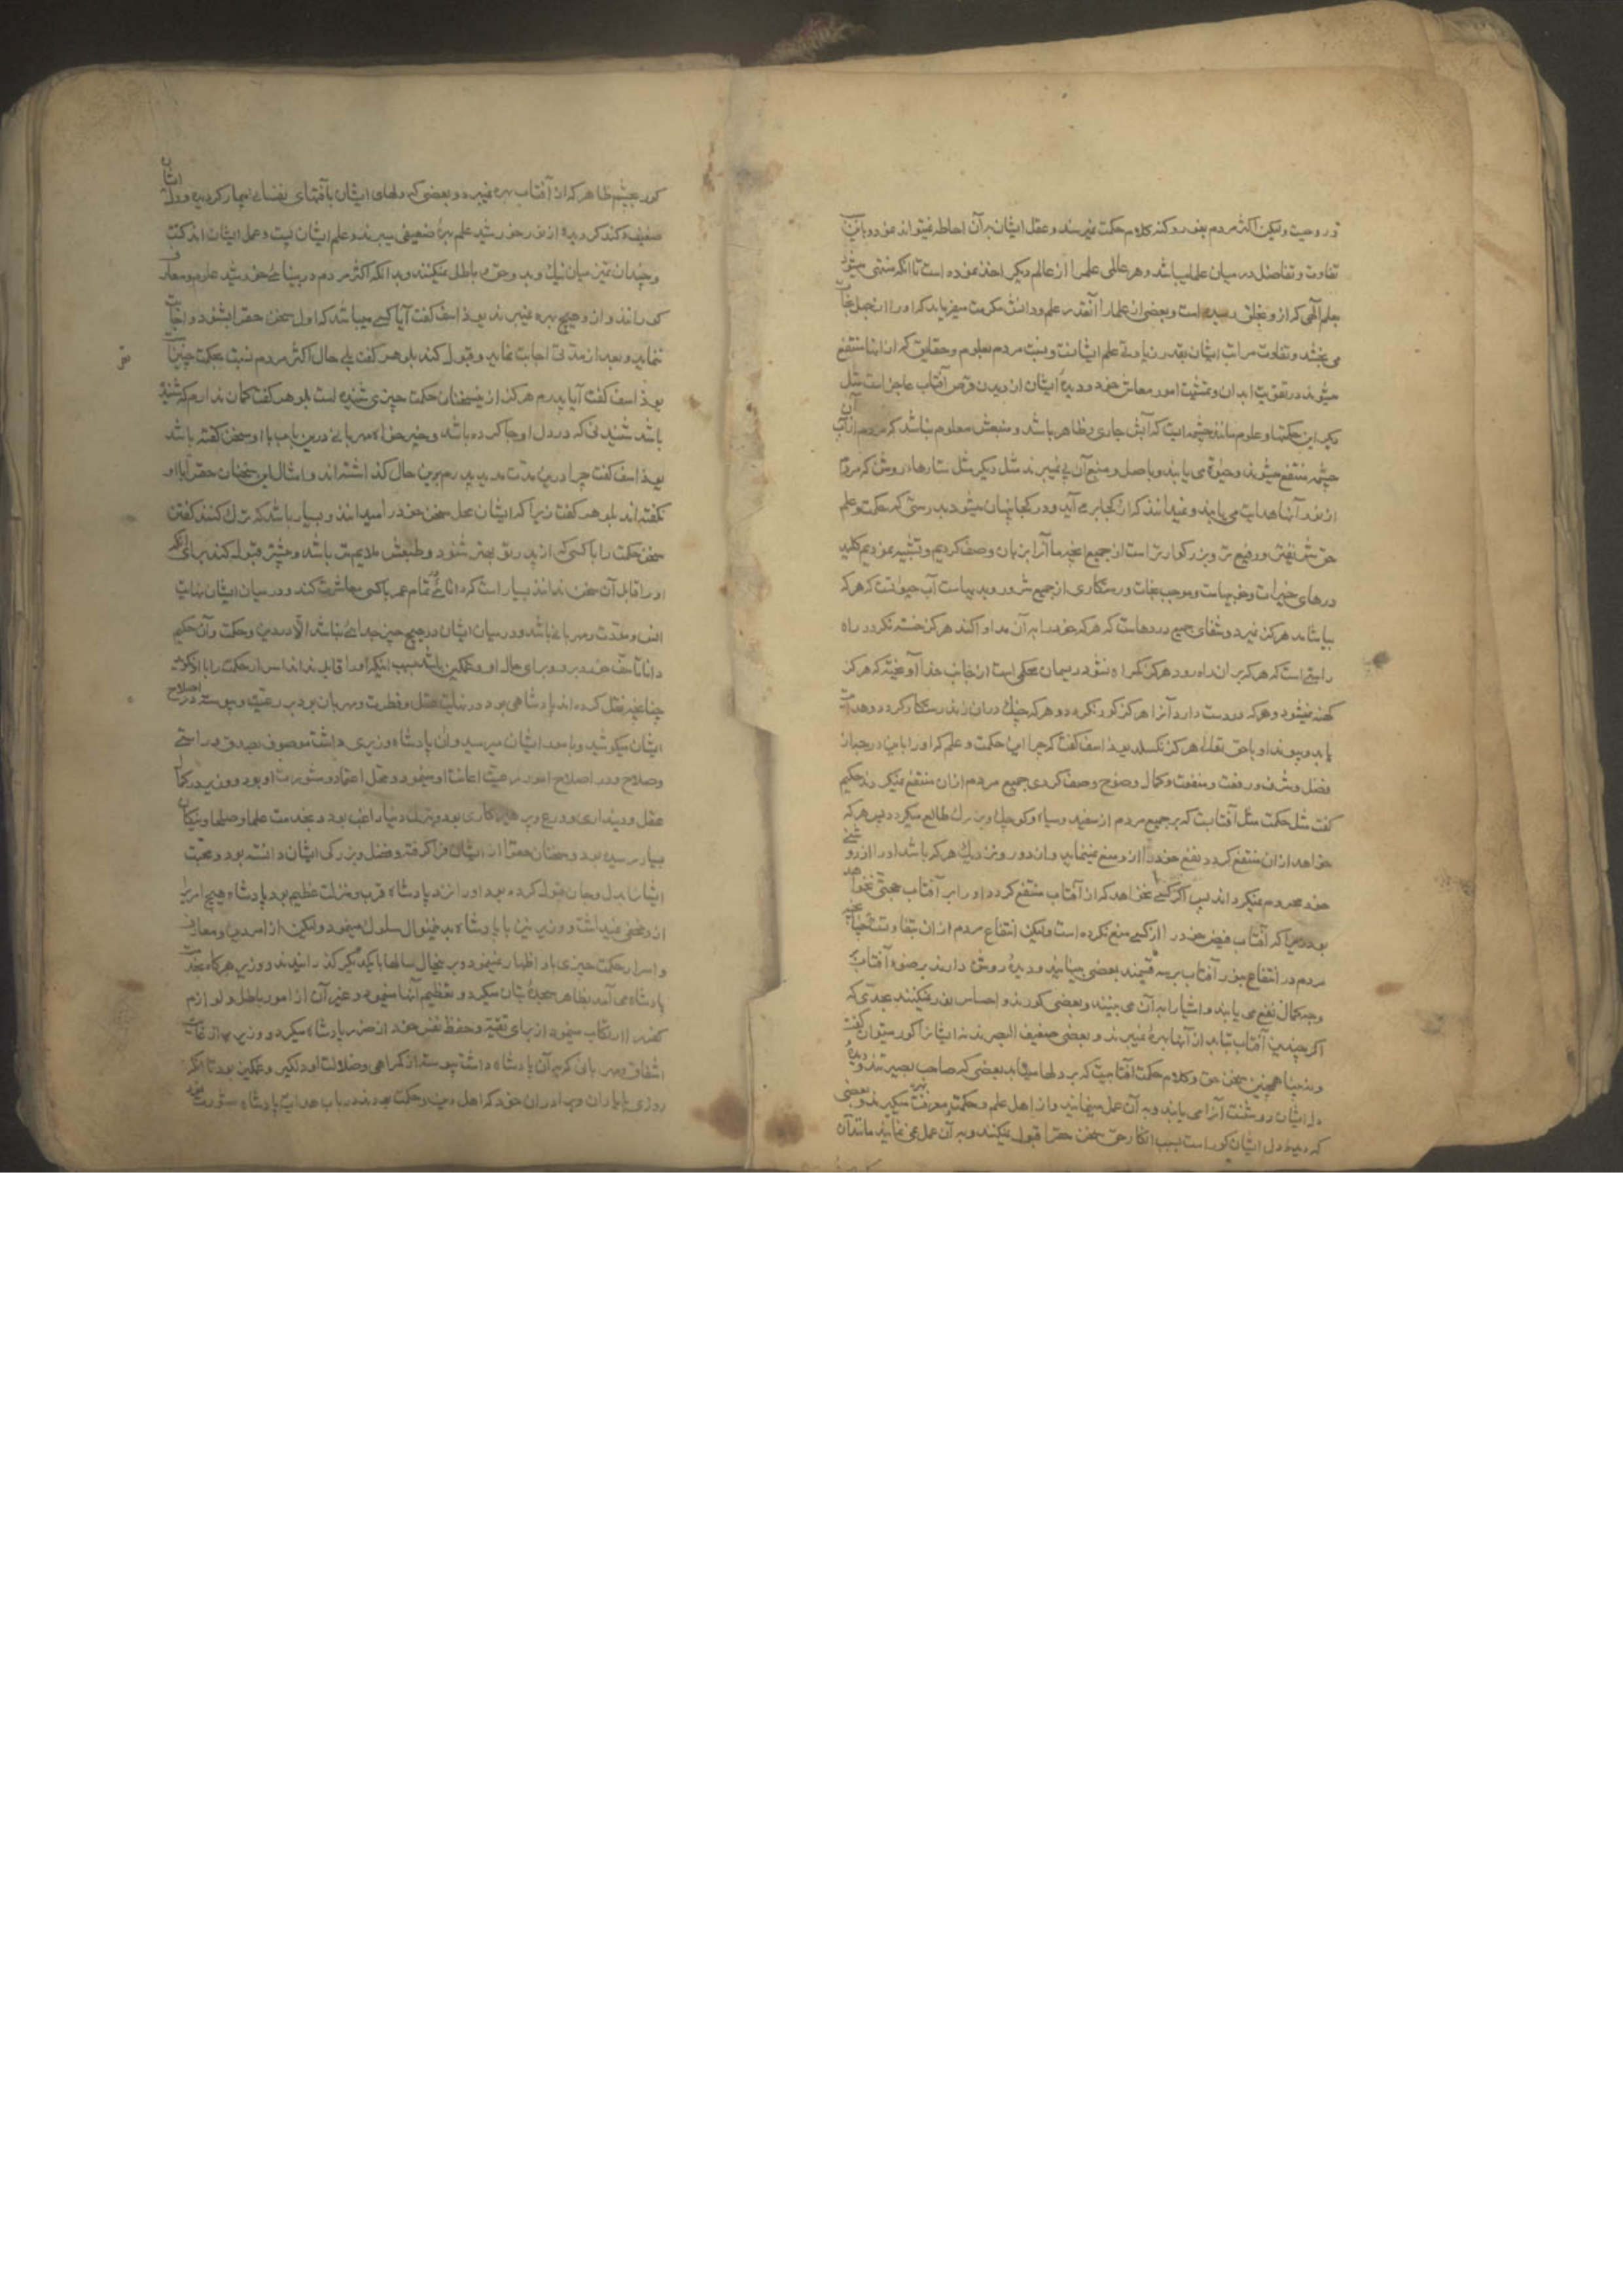 تو روحیت ولیکن اکثر مردم بغور و کنه کلام حکمت نمیرسند و عقل ایشان بر آن احاطه نمیتواند نمود و باین
تفاوت و تفاضل در میان علما میباشد و هر عالمی علمرا از عالم دیگر اخذ نموده است تا آنکه منتهی میشود
بعلم الهی که از او بخلق رسیده است و بعضی از علما را آنقدر علم و دانش مکرمت میفرماید که او را از جهل نجات
می بخشد و تفاوت مراتب ایشان بقدر زیادتی علم ایشانست و نسبت مردم بعلوم و حقایق که از آنها منتفع
میشوند در تقویت ابدان و تمشیت امور معاش خود و دیدهٔ ایشان از دیدن قرص آفتاب عاجز است مثل
دیگر این حکمتها و علوم مانند چشمه‌ایست که آبش جاری و ظاهر باشد و منبعش معلوم نباشد که مردم از آب آن
چشمه منتفع میشوند و حیوة می یابند و باصل و منبع آن پی نمیبرند مثل دیگر مثل ستارهای روشن که مردم
از نور آنها هدایت می یابند و نمیدانند که از کجا بر می آید و در کجا پنهان میشود بدرستی که حکمت و علم
حق شریفتر و رفیع تر و بزرگوارتر است از جمیع آنچه ما آنرا بآن وصف کردیم و تشبیه نمودیم کلید
درهای خیرات و خوبیهاست و موجب نجات و رستگاری از جمیع شرور و بدیهاست آب حیوانست که هر که
بیاشامد هرگز نمیرد و شفای جمیع دردهاست که هر که خود را به آن مداوا کند هرگز خسته نگردد راه
راستی است که هر که بر آن راه رود هرگز گمراه نشود ریسمان محکمی است از جانب خدا آویخته که هرگز
کهنه نمیشود و هر که در دست دارد آنرا هرگز کور نگردد و هر که چنگ در آن زند رستگار گردد و هدایت
یابد و پیوند او با حق تعالی هرگز نگسلد یوذاسف گفت که چرا این حکمت و علم که او را باین درجه از
فضل و شرف و رفعت و منفعت و کمال و وضوح وصف کردی جمیع مردم از آن منتفع نمیگردند حکیم
گفت مثل حکمت مثل آفتابست که بر جمیع مردم از سفید و سیاه و کوچک و بزرگ طالع میگردد پس هر که
خواهد از آن منتفع گردد نفع خود را از او منع نمینماید و از دور و نزدیک هر که باشد او را از روشنی
خود محروم نمیگرداند پس اگر کسی نخواهد که از آفتاب منتفع گردد او را بر آفتاب حجتی نخواهد
بود زیرا که آفتاب فیض خود را از کسی منع نکرده است ولیکن انتفاع مردم از آن متفاوتست چنانچه
مردم در انتفاع بنور آفتاب بر سه قسمند بعضی بینایند و دیدهٔ روشن دارند بر ضوء آفتاب
وجه کمال نفع می یابند و اشیا را به آن می بینند و بعضی کورند و احساس نور نمیکنند بحدی که
اگر چندین آفتاب بتابد از آنها بهرهٔ نمیبرند و بعضی ضعیف البصرند نه ایشانرا کور میتوان گفت
و نه بینا همچنین سخن حق و کلام حکمت آفتابیست که بر دلها میتابد بعضی که صاحب بصیرتند و دیدهٔ
دل ایشان روشنست آنرا می یابند و به آن عمل مینمایند و از اهل علم و حکمت و معرفت میگردند و بعضی
که دیدهٔ دل ایشان کور است بسبب انکار حق سخن حقرا قبول نمیکنند و به آن عمل نمی نمایند مانند آن
کور بچشم ظاهر که از آفتاب بهره نمیبرد و بعضی که دلهای ایشان بآفتهای نفسانی بیمار گردیده و دل ایشان
ضعیف و کند گردیده از نور خورشید علم بهرهٔ ضعیفی میبرند و علم ایشان پست و عمل ایشان اندکست
و چندان تمیز میان نیک و بد و حق و باطل نمیکنند و بدانکه اکثر مردم در بینائی خورشید علوم و معارف
کورانند و از او هیچ بهره نمیبرند یوذاسف گفت آیا کسی میباشد که اول سخن حقرا بشنود و اجابت
ننماید و بعد از مدتی اجابت نماید و قبول کند بلوهر گفت بلی حال اکثر مردم نسبت بحکمت چنین است
یوذاسف گفت آیا پدرم هرگز از این سخنان حکمت چیزی شنیده است بلوهر گفت گمان ندارم که شنیده
باشد شنیدنی که در دل او جا کرده باشد و خیر خواه مهربانی درین باب با او سخن گفته باشد
یوذاسف گفت چرا درین مدت مدید پدرم برین حال گذاشته‌اند و امثال این سخنان حقرا با او
نگفته‌اند بلوهر گفت زیرا که ایشان محل سخن خود را میدانند و بسیار باشد که ترک کنند گفتن
سخن حکمت را با کسی که از پدر تو بهتر شنود و طبعش ملایم تر باشد و بیشتر قبول کند برای آنکه
او را قابل آن سخن ندانند بسیار است که دانائی تمام عمر با کسی معاشرت کند و در میان ایشان نهایت
انس و مودت و مهربانی باشد و در میان ایشان در هیچ چیز جدائی نباشد الا در دین و حکمت و آن حکیم
دانا تأسف خورد بر او و برای حال او غمگین باشد بسبب اینکه او را قابل نداند اسرار حکمت را با او نگوید
چنانچه نقل کرده‌اند پادشاهی بود در نهایت عقل و فطرت و مهربان بود بر رعیت و پیوسته در اصلاح
ایشان میکوشید و بامور ایشان میرسید و آن پادشاه وزیری داشت موصوف بصدق و راستی
و صلاح و در اصلاح امور رعیت اعانت او مینمود و محل اعتماد و مشورت او بود و وزیر در کمال
عقل و دینداری و ورع و پرهیزکاری بود و بترک دنیا راغب بود و بخدمت علما و صلحا و نیکان
بسیار رسیده بود و سخنان حقرا از ایشان فرا گرفته و فضل و بزرگی ایشان دانسته بود و محبت
ایشانرا بدل و جان قبول کرده بود و او را نزد پادشاه قرب و منزلت عظیم بود و پادشاه هیچ امریرا
از او مخفی نمیداشت و وزیر نیز با پادشاه بدینمنوال سلوک مینمود ولیکن از امر دین و معارف
و اسرار حکمت چیزی باو اظهار نمینمود و برینحال سالها با یکدیگر گذرانیدند و وزیر هر گاه بخدمت
پادشاه می آمد بظاهر سجدهٔ بتان میکرد و تعظیم آنها مینمود و غیر آن از امور باطل و لوازم
کفر را ارتکاب مینمود از برای تقیه و حفظ نفس خود از ضرر پادشاه میکرد و وزیر از غایت
اشفاق و مهربانی که به آن پادشاه داشت پیوسته از گمراهی و ضلالت او دلگیر و غمگین بود تا آنکه
روزی با یاران و برادران خود که اهل دین و حکمت بودند در باب هدایت پادشاه مشورت نمود